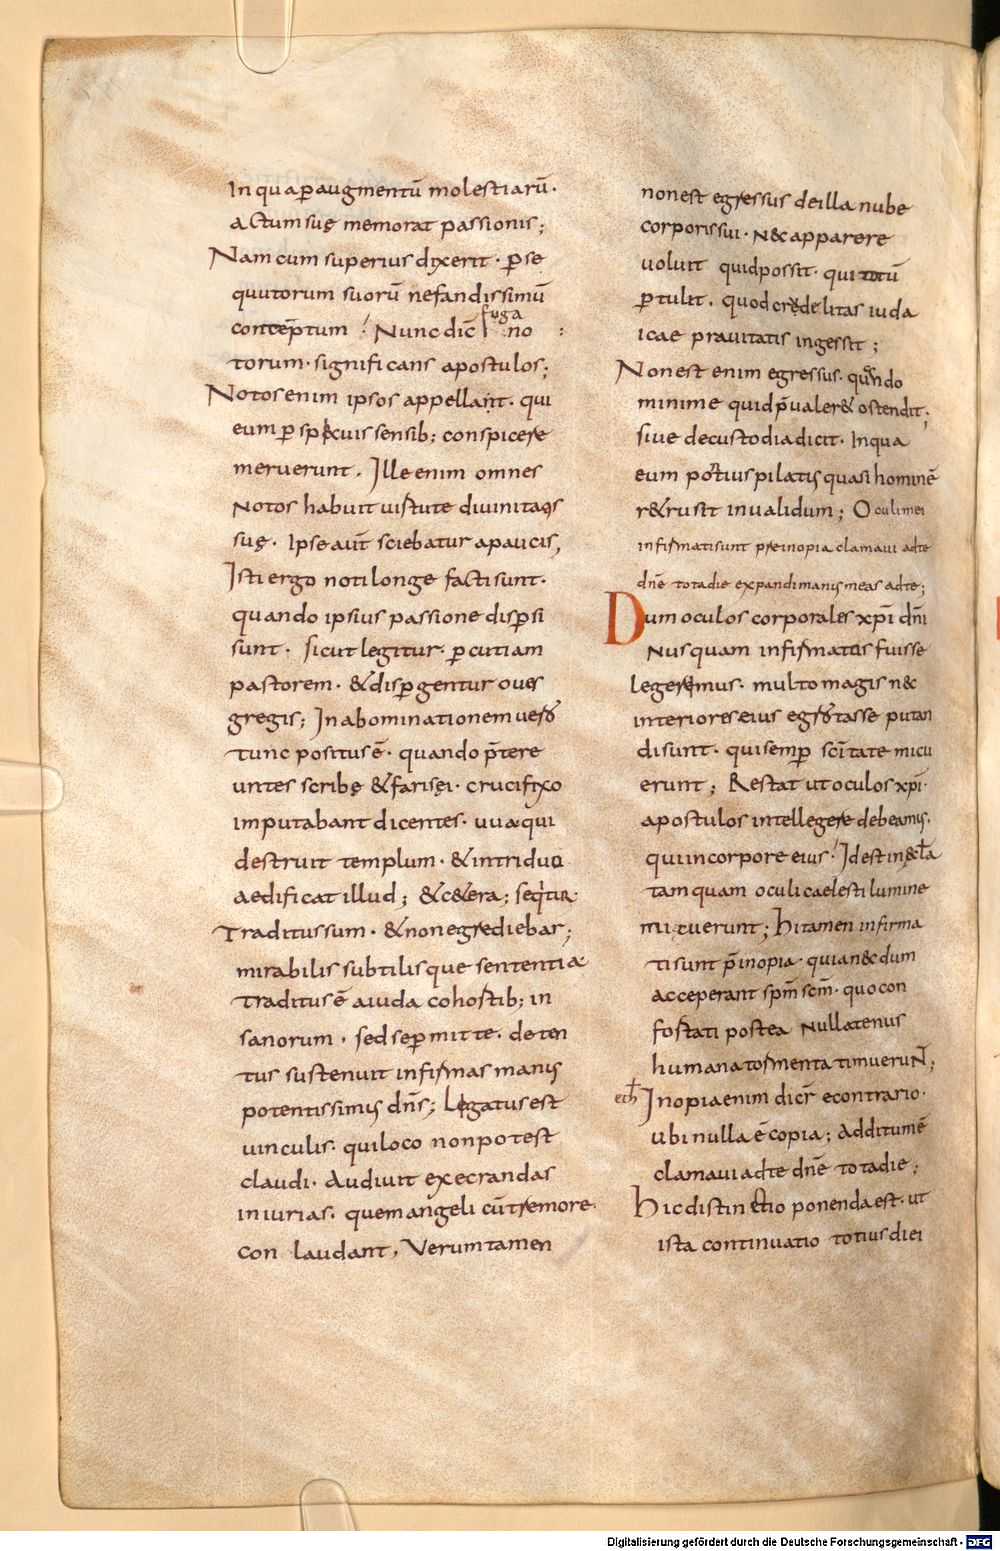 In qua p augmentū molestiarū·
actum suę memorat passionis;
Nam cum superius dixerit· pse
quutorum suorū nefandissimū
conteptum Nunc dic̄ fuga no
torum· significans apostolos;
Notos enim ipsos appellant· qui
eum p sp̄cuis sensib; conspicere
meruerunt. Ille enim omnes
notos habuit uirtute diuinitatis
suę. Ipse aut̄ sciebatur a paucis,
Isti ergo noti longe facti sunt·
quando ipsius passione dispsi
sunt· sicut legitur· pcutiam
pastorem· & dispgentur oues
gregis; In abominationem uero
tunc positus ē· quando p̄tere
untes scribę & farisęi· crucifixo
imputabant dicentes· uua qui
destruit templum· & in triduo
aedificat illud; & c&era; seqitur·
Traditus sum· & non egrediebar;
mirabilis subtilisque sententia
traditus ē a iuda cohortib; in
sanorum· sed se pmitte· deten
tus sustenuit infirmas manus
potentissimus dn̄s; Legatus est
uinculis· qui loco non potest
claudi· Audiuit execrandas
iniurias· quem angeli cū tremore·
con laudant, Uerumtamen
non est egressus de illa nube
corporis sui· n&c apparere
uoluit quid possit· qui totū
ptulit. quod credelitas iuda
icae prauitatis ingessit;
Non est enim egressus· quando
minime quid p̄ualer& ostendit;
siue de custodia dicit· In qua
eum potius pilatus quasi hominē
r&rusit inualidum; Oculi mei
infirmati sunt pre inopia clamaui ad te
dn̄e tota die expandi manus meas ad te;
Dum oculos corporales xp̄i dn̄i
nusquam infirmatos fuisse
legeremus· multo magis n&c
interiores eius egrotasse putan
di sunt· qui semp sc̄itate micu
erunt; Restat ut oculos xp̄i·
apostulos intellegere debeamus·
qui in corpore eius· Id est in &cl̄a
tamquam oculi caelesti lumine
mituerunt; hi tamen infirma
ti sunt p̄ inopia· quia n&cdum
acceperant sp̄m sc̄m· quo con
fostati postea nullatenus
humana tormenta timuerunt;
Inopia enim dicit̄ econtrario·
ubi nulla ē copia; Additum ē
clamaui ad te dn̄e tota die;
hic distinctio ponenda est· ut
ista continuatio totius diei
Digitalisierung gefördert durch die Deutsche Forschungsgemeinschaft - DFG